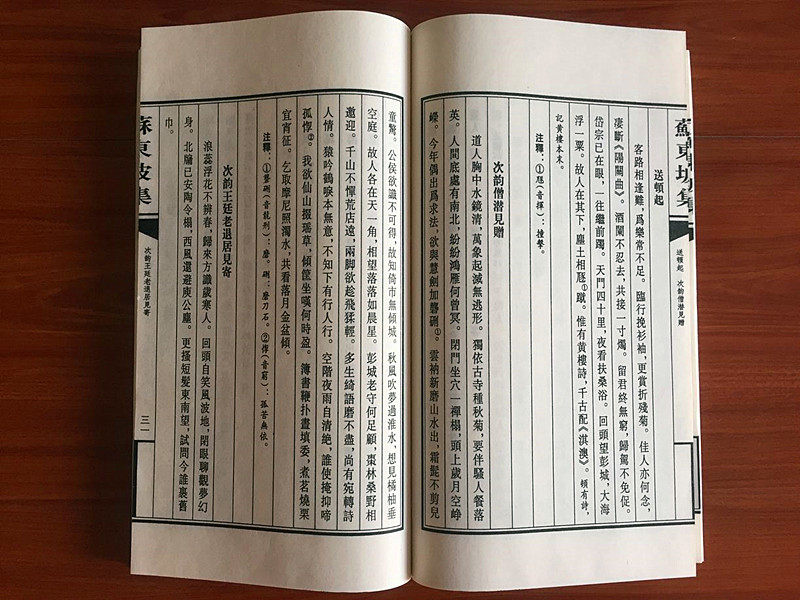 蘇東坡集
送頓起 次韵僧潜見贈
送頓起
客路相逢難，爲樂常不足。臨行挽衫袖，更賞折殘菊。佳人亦何念，
凄斷《陽關曲》。酒闌不忍去，共接一寸燭。留君終無窮，歸駕不免促。
岱宗已在眼，一往繼前躅。天門四十里，夜看扶桑浴。回頭望彭城，大海
浮一粟。故人在其下，塵土相豗①蹴。惟有黄樓詩，千古配《淇澳》。頓有詩，
記黄樓本末。
注釋：①豗（音揮）：撞擊。
次韵僧潜見贈
道人胸中水鏡清，萬象起滅無逃形。獨依古寺種秋菊，要伴騷人餐落
英。人間底處有南北，紛紛鴻雁何曾冥。閉門坐穴一禪榻，頭上歲月空崢
嶸。今年偶出爲求法，欲與慧劍加礱硎①。雲衲新磨山水出，霜髭不剪兒
童驚。公侯欲識不可得，故知倚市無傾城。秋風吹夢過淮水，想見橘柚垂
空庭。故人各在天一角，相望落落如晨星。彭城老守何足顧，棗林桑野相
邀迎。千山不憚荒店遠，兩脚欲趁飛猱輕。多生綺語磨不盡，尚有宛轉詩
人情。猿吟鶴唳本無意，不知下有行人行。空階夜雨自清絶，誰使掩抑啼
孤惸②。我欲仙山掇瑶草，傾筐坐嘆何時盈。簿書鞭扑晝填委，煮茗燒栗
宜宵征。乞取摩尼照濁水，共看落月金盆傾。
注釋：①礱硎（音龍刑）：磨。硎：磨刀石。②惸（音窮）：孤苦無依。
次韵王廷老退居見寄
浪蕊浮花不辨春，歸來方識歲寒人。回頭自笑風波地，閉眼聊觀夢幻
身。北牖已安陶令榻，西風還避庾公塵。更搔短髮東南望，試問今誰裹舊
巾。
蘇東坡集
次韵王廷老退居見寄
三一